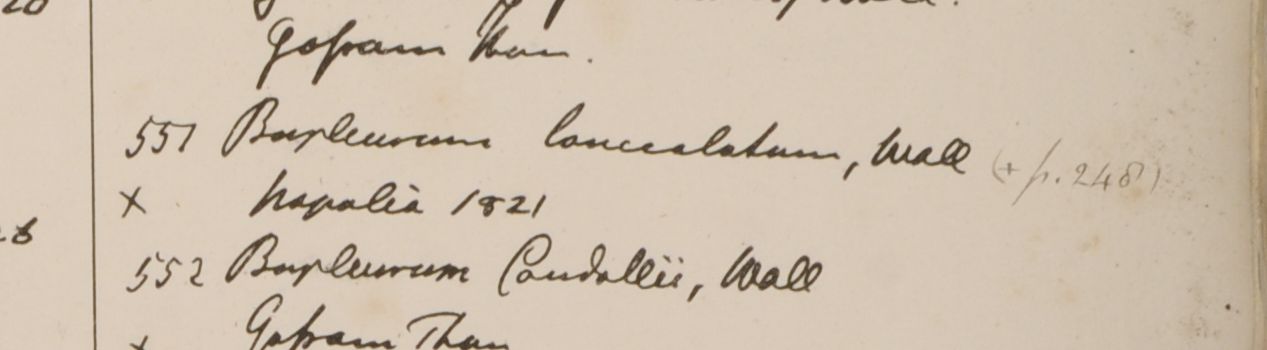 20
Gosram Than.
551 Bupleurum lanceolatum, Wall (+ p. 248)
x Napalia 1821
552 Bupleurum Candollii, Wall
x Gosram Than